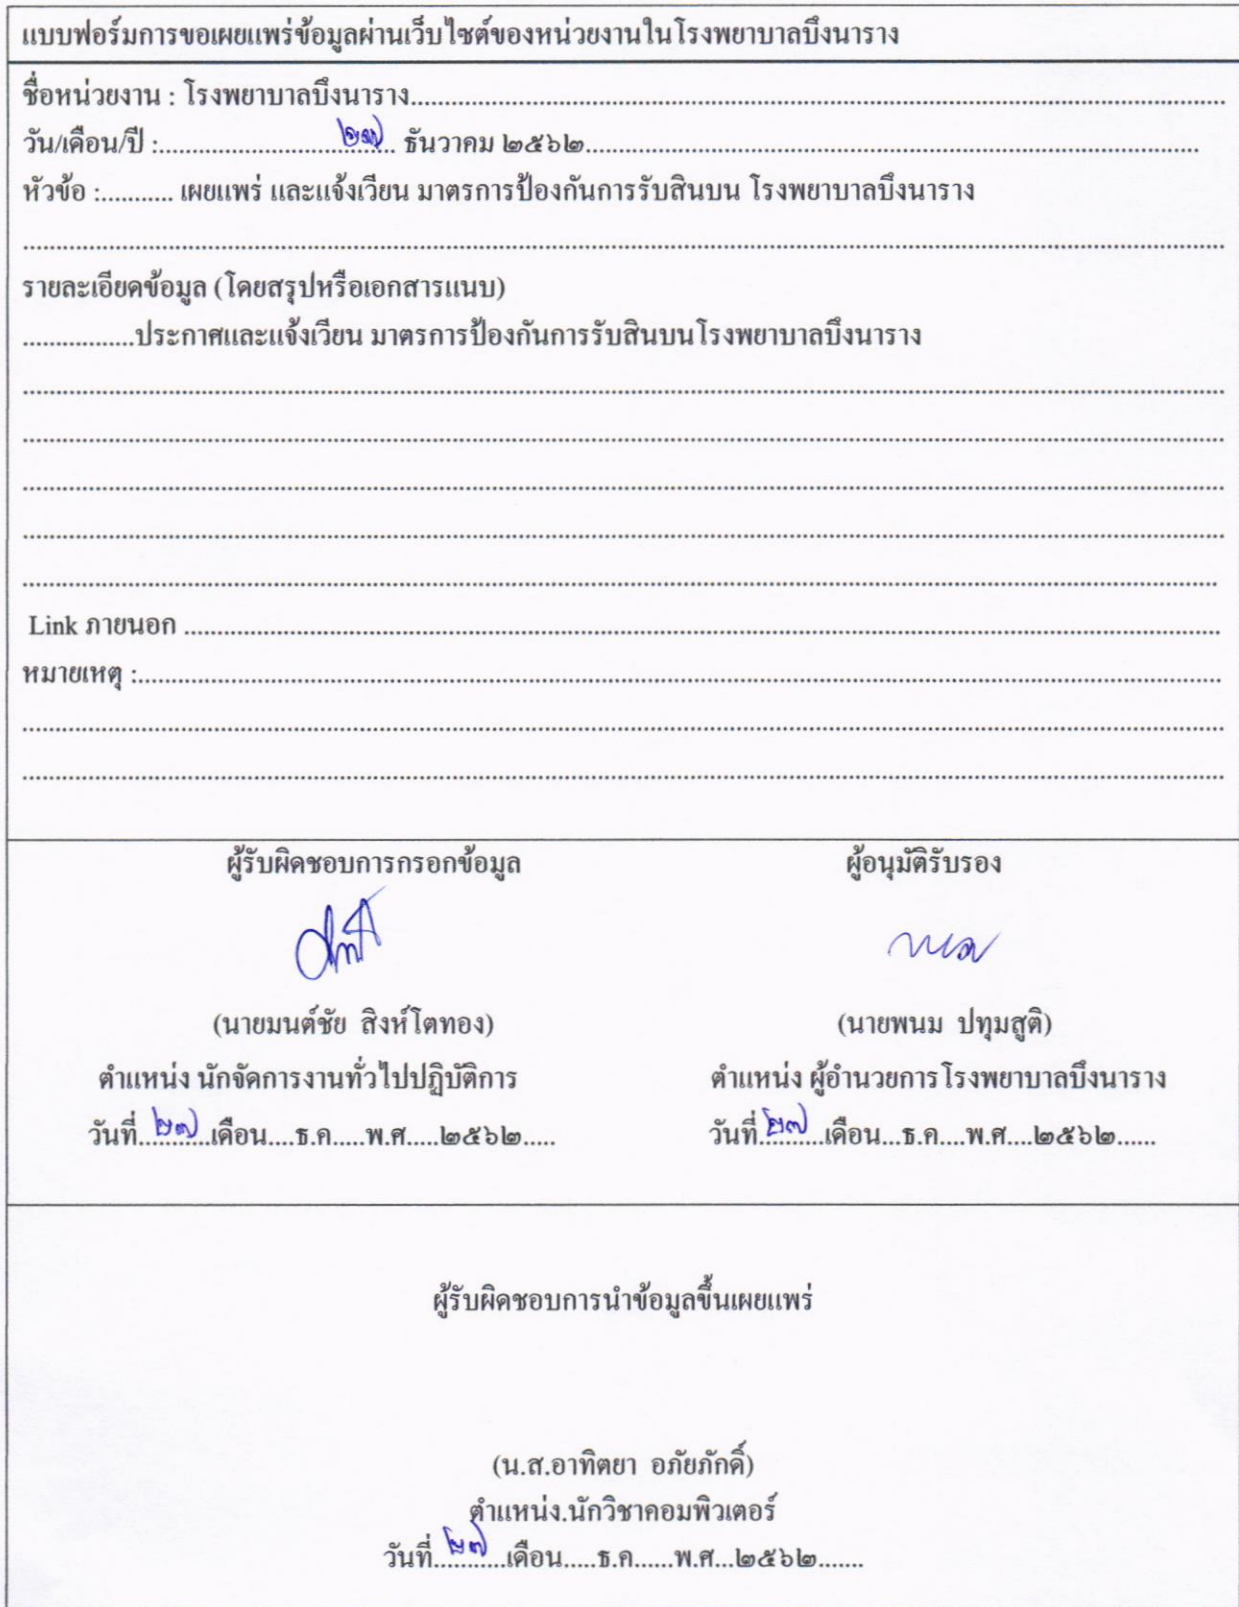 แบบฟอร์มการขอเผยแพร่ข้อมูลผ่านเว็บไซต์ของหน่วยงานในโรงพยาบาลบึงนาราง
ชื่อหน่วยงาน : โรงพยาบาลบึงนาราง....................
วัน/เดือน/ปี :.................... ๒๗ ธันวาคม ๒๕๖๒....................
หัวข้อ :........... เผยแพร่ และแจ้งเวียน มาตรการป้องกันการรับสินบน โรงพยาบาลบึงนาราง
รายละเอียดข้อมูล (โดยสรุปหรือเอกสารแนบ)
.................ประกาศและแจ้งเวียน มาตรการป้องกันการรับสินบนโรงพยาบาลบึงนาราง
Link ภายนอก ....................
หมายเหตุ :....................
ผู้รับผิดชอบการกรอกข้อมูล
(นายมนต์ชัย สิงห์โตทอง)
ตำแหน่ง นักจัดการงานทั่วไปปฏิบัติการ
วันที่..๒๗..เดือน....ธ.ค.....พ.ศ.....๒๕๖๒.....
ผู้อนุมัติรับรอง
(นายพนม ปทุมสูติ)
ตำแหน่ง ผู้อำนวยการโรงพยาบาลบึงนาราง
วันที่..๒๗..เดือน...ธ.ค....พ.ศ....๒๕๖๒......
ผู้รับผิดชอบการนำข้อมูลขึ้นเผยแพร่
(น.ส.อาทิตยา อภัยภักดิ์)
ตำแหน่ง.นักวิชาคอมพิวเตอร์
วันที่..๒๗..เดือน.....ธ.ค......พ.ศ...๒๕๖๒.......